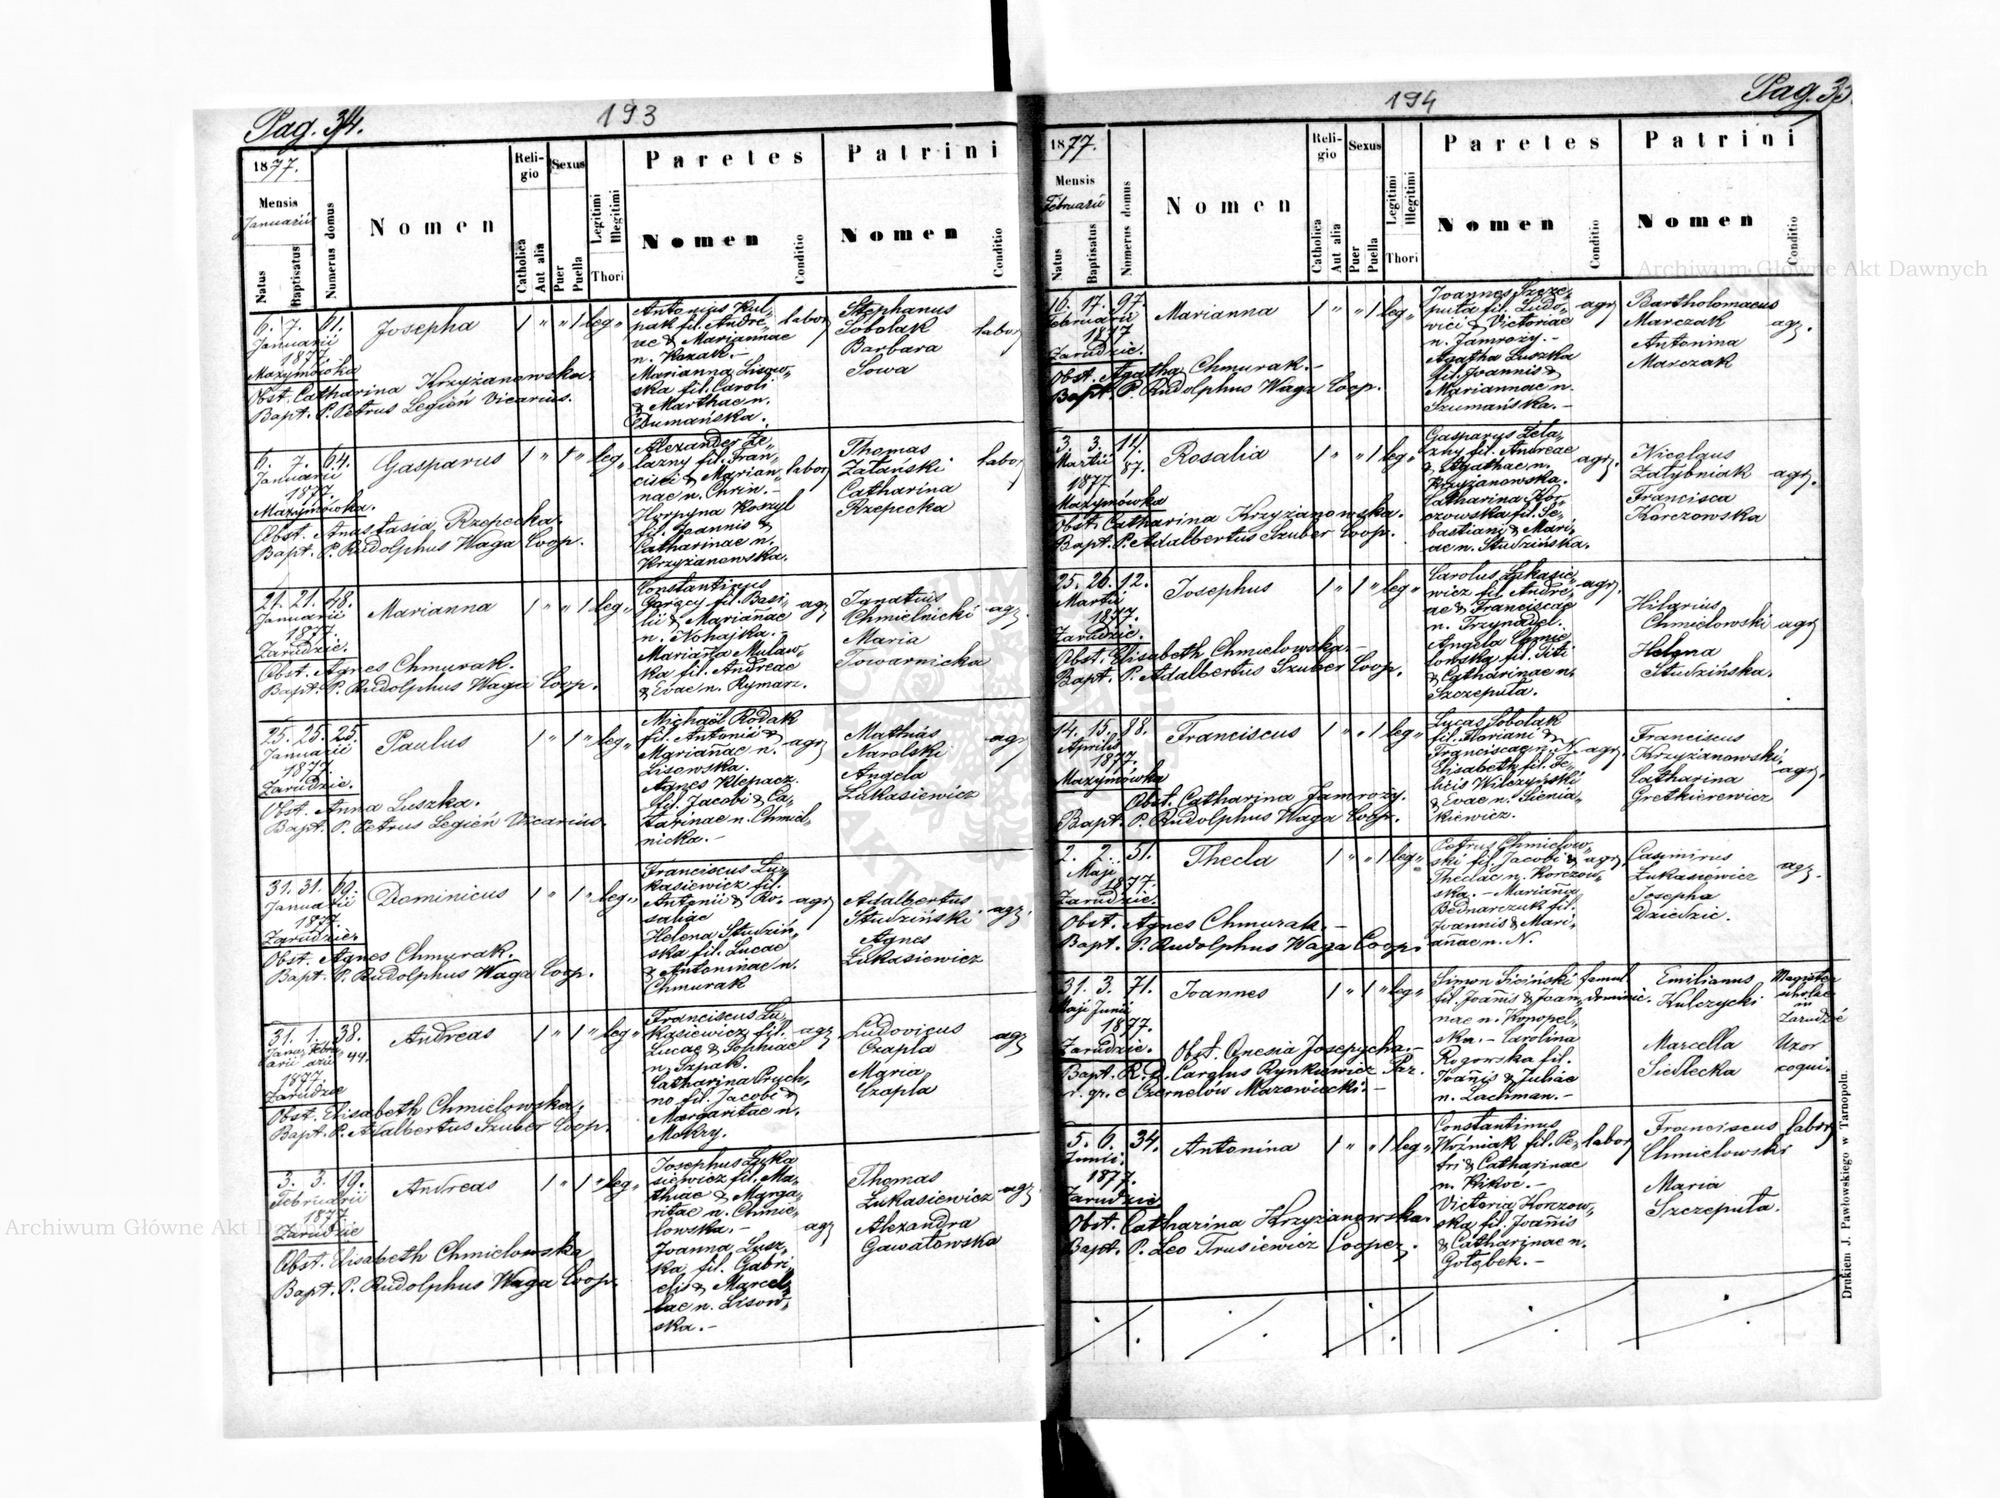 Pag. 34.
193
1877.
Mensis
Januarii
Natus
Baptisatus
Numerus domus
Nomen
Religio
Catholica
Aut alia
Sexus
Puer
Puella
Legitimi
Illegitimi
Thori
Paretes
Nomen
Conditio
Patrini
Nomen
Conditio
6. 7. 61.
Januarii
1877.
Mazymówka
Josepha
1 " " 1 leg "
Antonius Kul-
pak fil. Andre-
ae & Mariannae
n. Kozak. -
Marianna Lisow-
ska fil. Caroli
& Marthae n.
Dumańska.
labor
Stephanus
Sobolak
Barbara
Sowa
labor
Obst. Catharina Krzyżanowska.
Bapt. P. Petrus Legień Vicarius.
6. 7. 64.
Januarii
1877.
Mazymówka.
Gasparus
1 " 1 " leg "
Alexander Że-
lazny fil. Fran-
cisci & Marian-
nae n. Chrin. -
Horpyna Koszyl
fil. Joannis &
Catharinae n.
Krzyżanowska.
labor
Thomas
Zatański
Catharina
Rzepecka
labor
Obst. Anastasia Rzepecka.
Bapt. P. Rudolphus Waga Coop.
21. 21. 48.
Januarii
1877.
Zarudzie.
Marianna
1 " " 1 leg "
Constantinus
Gorący fil. Basi-
lii & Mariañae
n. Nohajka.
Mariaña Mulaw-
ka fil. Andreae
& Evae n. Rymarz.
agr
Ignatius
Chmielnicki
Maria
Towarnicka
agr.
Obst. Agnes Chmurak.
Bapt. P. Rudolphus Waga Coop.
25. 25. 25.
Januarii
1877
Zarudzie.
Paulus
1 " 1 " leg "
Michaël Rodak
fil. Antonii &
Mariañae n.
Lisewska.
Agnes Klepacz
fil. Jacobi & Ca-
tarinae n. Chmiel-
nicka. -
agr
Mathias
Narolski
Angela
Łukasiewicz
agr
Obst. Anna Luszka.
Bapt. P. Petrus Legień Vicarius.
31. 31. 69.
Januarii
1877
Zarudzie.
Dominicus
1 " 1 " leg "
Franciscus Łu-
kasiewicz fil.
Antonii & Ro-
saliae
Helena Studziń-
ska fil. Lucae
& Antoninae n.
Chmurak
agr
Adalbertus
Studziński
Agnes
Łukasiewicz
agr.
Obst. Agnes Chmurak.
Bapt. P. Rudolphus Waga Coop.
31. 1. 38.
44.
1877.
Zarudzie
Andreas
1 " 1 " leg "
Franciscus Łu-
kasiewicz fil.
Lucae & Sophiae
n. Szpak.
Catharina Pruch-
no fil. Jacobi &
Margaritae n.
Mokry.
agr
Ludovicus
Czapla
Maria
Czapla
agr
Obst. Elisabeth Chmielowska.
Bapt. P. Adalbertus Szuber Coop.
3. 3. 19.
Februarii
1877
Zarudzie
Andreas
1 " 1 " leg "
Josephus Łuka
siewicz fil. Ma-
thiae & Marga-
ritae n. Chmie-
lowska. -
Joanna Lusz-
ka, fil. Gabri-
elis & Marcel-
lae n. Lisow-
ska. -
agr
Thomas
Łukasiewicz
Alexandra
Gawatowska
agr
Obst. Elisabeth Chmielowska
Bapt. P. Rudolphus Waga Coop.
194
Pag. 35.
1877.
Mensis
Februarii
Natus
Baptisatus
Numerus domus
Nomen
Religio
Catholica
Aut alia
Sexus
Puer
Puella
Legitimi
Illegitimi
Thori
Paretes
Nomen
Conditio
Patrini
Nomen
Conditio
16. 17. 97.
Februarii
1877
Zarudzie.
Marianna
1 " " 1 leg "
Joannes Szcze-
puta fil. Ludo-
vici & Victoriae
n. Jamrozy. -
Agatha Luszka
fil. Joannis &
Mariannae n.
Szumańska. -
agr
Bartholomaeus
Marczak
Antonina
Marczak
agr.
Obst. Agatha Chmurak. -
Bapt. P. Rudolphus Waga Coop.
3. 3. 11.
87.
Martii
1877
Mazymówka
Rosalia
1 " " 1 leg "
Gasparus Żela-
zny fil. Andreae
& Agathae n.
Krzyżanowska.
Catharina Kor-
czowska fil. Se-
bastiani & Mari-
ae n. Studzińska.
agr.
Nicolaus
Załybniak
Francisca
Korczowska
agr.
Obst. Catharina Krzyżanowska.
Bapt. P. Adalbertus Szuber Coop.
25. 26. 12.
Martii
1877.
Zarudzie.
Josephus
1 " 1 " leg "
Carolus Łukasie-
wicz fil. Andre-
ae & Franciscae
n. Trzynadel.
Angela Chmie-
lowska fil. Titi
& Catharinae n.
Szczeputa.
agr.
Hilarius
Chmielowski
Helena
Studzińska.
agr
Obst. Elisabeth Chmielowska. -
Bapt. P. Adalbertus Szuber Coop.
14. 15. 88.
Aprilis
1877.
Mazymówka
Franciscus
1 " " 1 leg "
Lucas Sobolak
fil. Mariani &
Franciscae n. N.
Elisabeth fil. Fe-
licis Wilczyński
& Evae n. Sienia-
kiewicz.
agr.
Franciscus
Krzyżanowski,
Catharina
Gretkierewicz
agr.
Obst. Catharina Jamrozy.
Bapt. P. Rudolphus Waga Coop.
2. 2. 51.
Maji
1877.
Zarudzie.
Thecla
1 " " 1 leg "
Petrus Chmielow-
ski fil. Jacobi &
Theclae n. Korczow-
ska. - Mariaña
Bednarczuk fil.
Joannis & Mari-
añae n. N.
agr.
Casimirus
Łukasiewicz
Josepha
Dziedzic.
agr.
Obst. Agnes Chmurak. -
Bapt. P. Rudolphus Waga Coop.
31. 3. 71.
Maji Junii
1877.
Zarudzie.
Joannes
1 " 1 " leg "
Simon Siciński
fil. Joañis & Joan-
nae n. Konopel-
ska. - Carolina
Rogowska fil.
Joañis & Juliae
n. Lachman. -
famul
dominic.
Emilianus
Kulczycki
Marcella
Siedlecka
Magister
scholae
in
Zarudzie
Uxor
coqui.
Obst. Onesia Josepycha. -
Bapt. R. D. Carolus Rynkiewicz Par.
r. gr. e Czernelów Mazowiecki. -
5. 6. 34.
Junii.
1877.
Zarudzie
Antonina
1 " " 1 leg "
Constantinus
Woźniak fil. Pe-
tri & Catharinae
n. Kikoć. -
Victoria Korczow-
ska fil. Joañis
& Catharinae n.
Gołąbek. -
labor
Franciscus
Chmielowski
Maria
Szczeputa.
labor
Obst. Catharina Krzyżanowska.
Bapt. P. Leo Trusiewicz Cooper.
Drukiem J. Pawłowskiego w Tarnopolu.
Archiwum Główne Akt Dawnych
Archiwum Główne Akt Dawnych